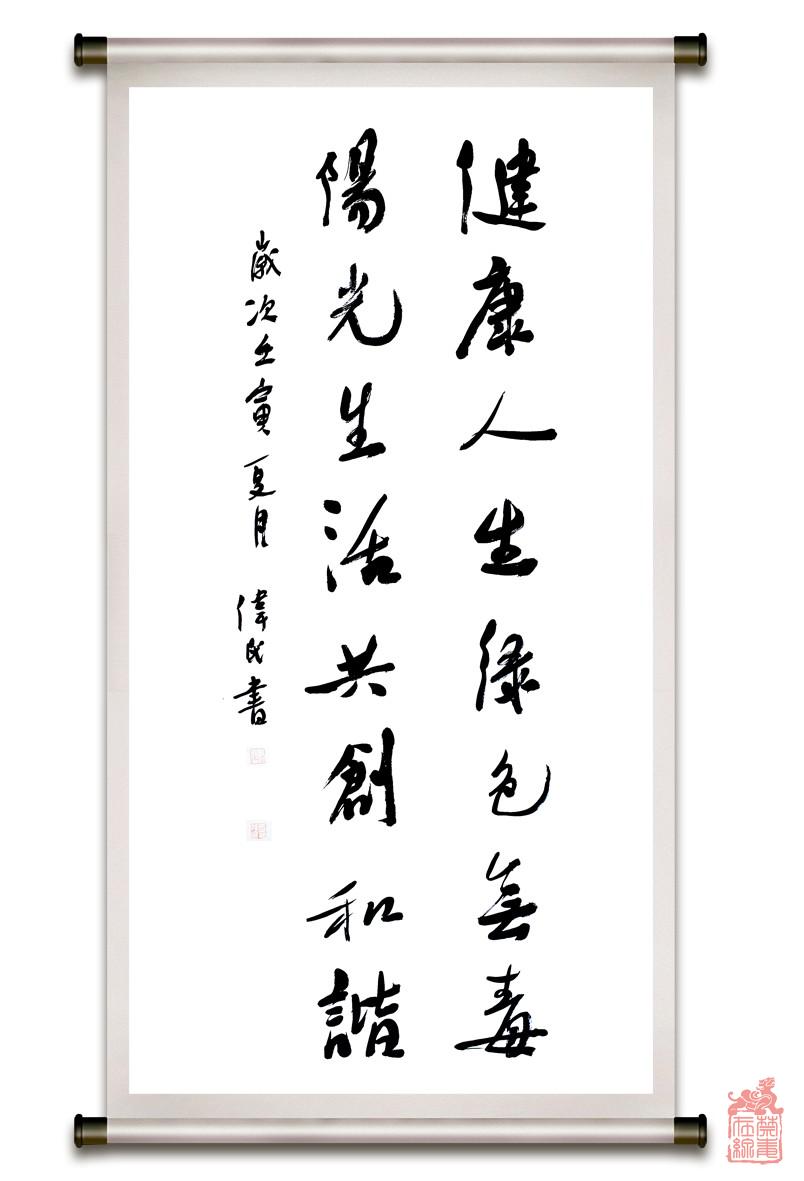 健康人生绿色無毒
陽光生活共創和諧
歲次壬寅夏月 偉民書